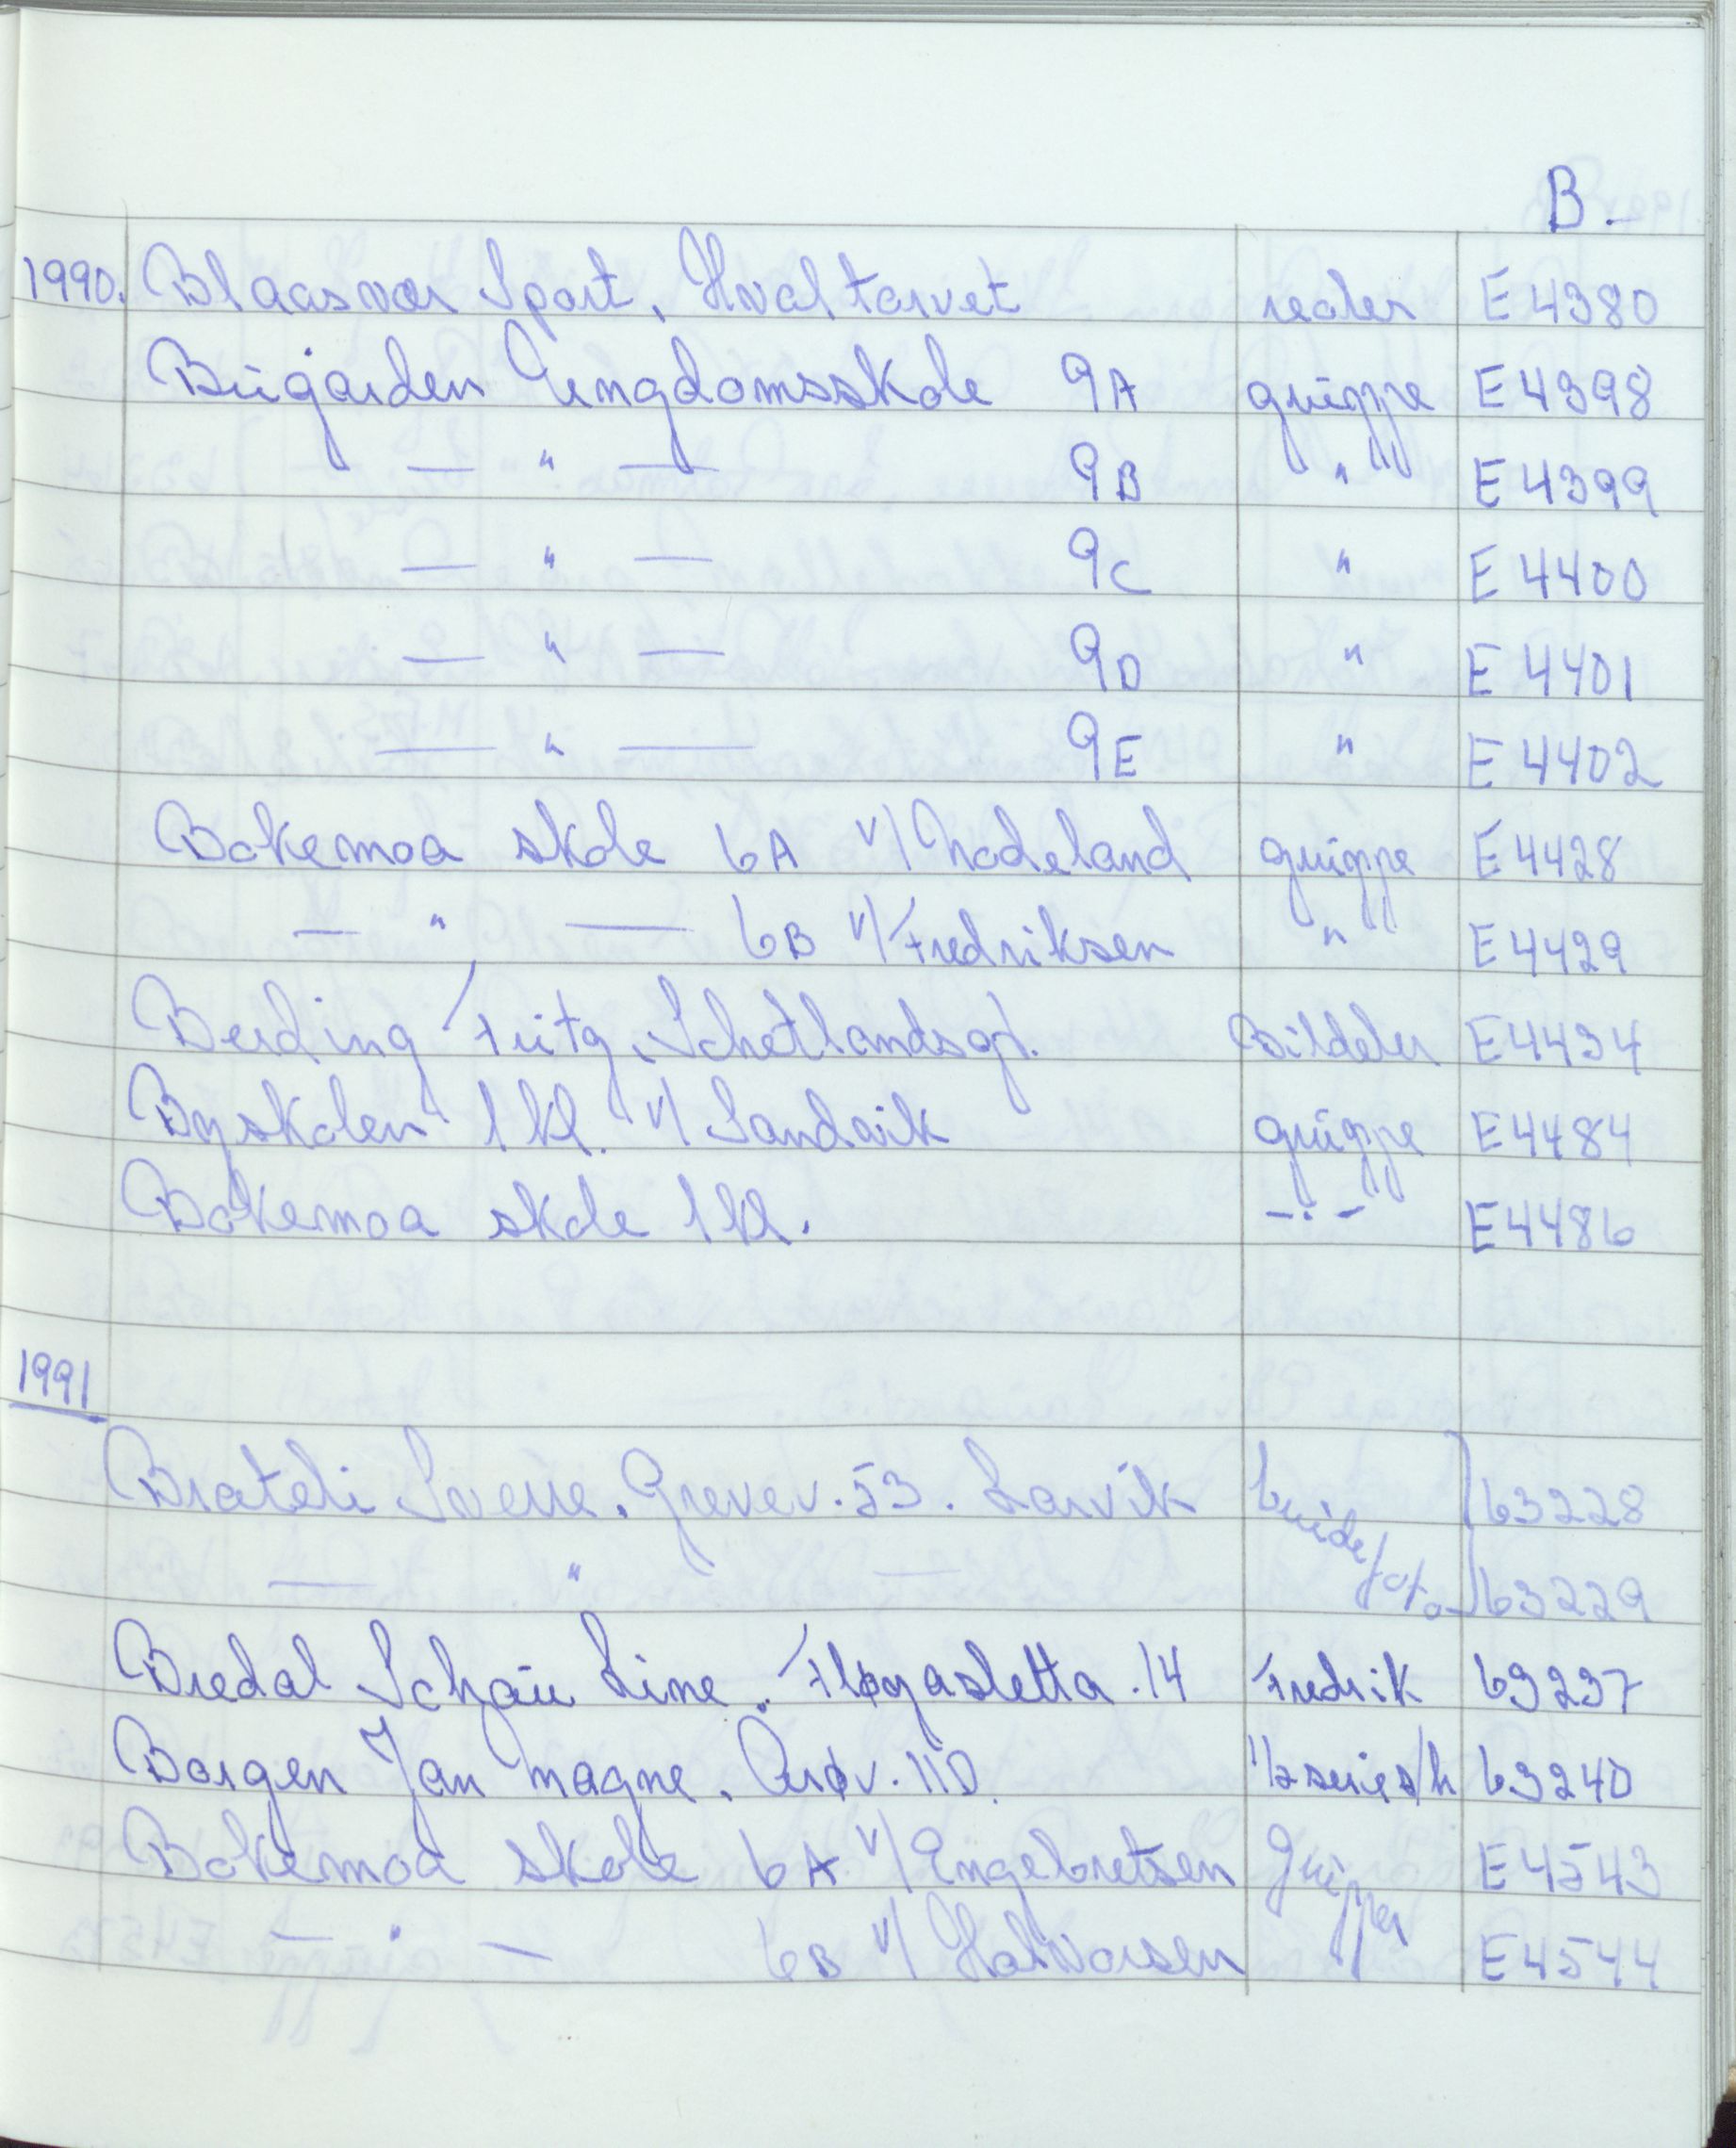 B.-
1990. Blaasvær Sport, Hvaltorvet reoler E 4380
Bugården Ungdomsskole 9A gruppe E 4398
— " — 9B " E 4399
— " — 9C " E 4400
— " — 9D " E 4401
— " — 9E " E 4402
Bøkemoa skole 6A v/ Nodeland gruppe E 4428
— " — 6B v/ Fredriksen " E 4429
Berding Fritg. Schetlandsgt. Bildeler E 4434
Byskolen 1 kl. v/ Sandvik gruppe E 4484
Bøkemoa skole 1 kl. -:- E 4486
1991
Brateli Sverre. Grevev. 53. Larvik brude/ 63228
— " — 63229
Bredal Schau Line. Fløyasletta 14 Fredrik 63237
Borgen Jan Magne. 11D. 1/2 series/h 63240
Bøkemoa skole 6A v/ Engebretsen Grupper E 4543
— " — 6B v/ Halvorsen E 4544